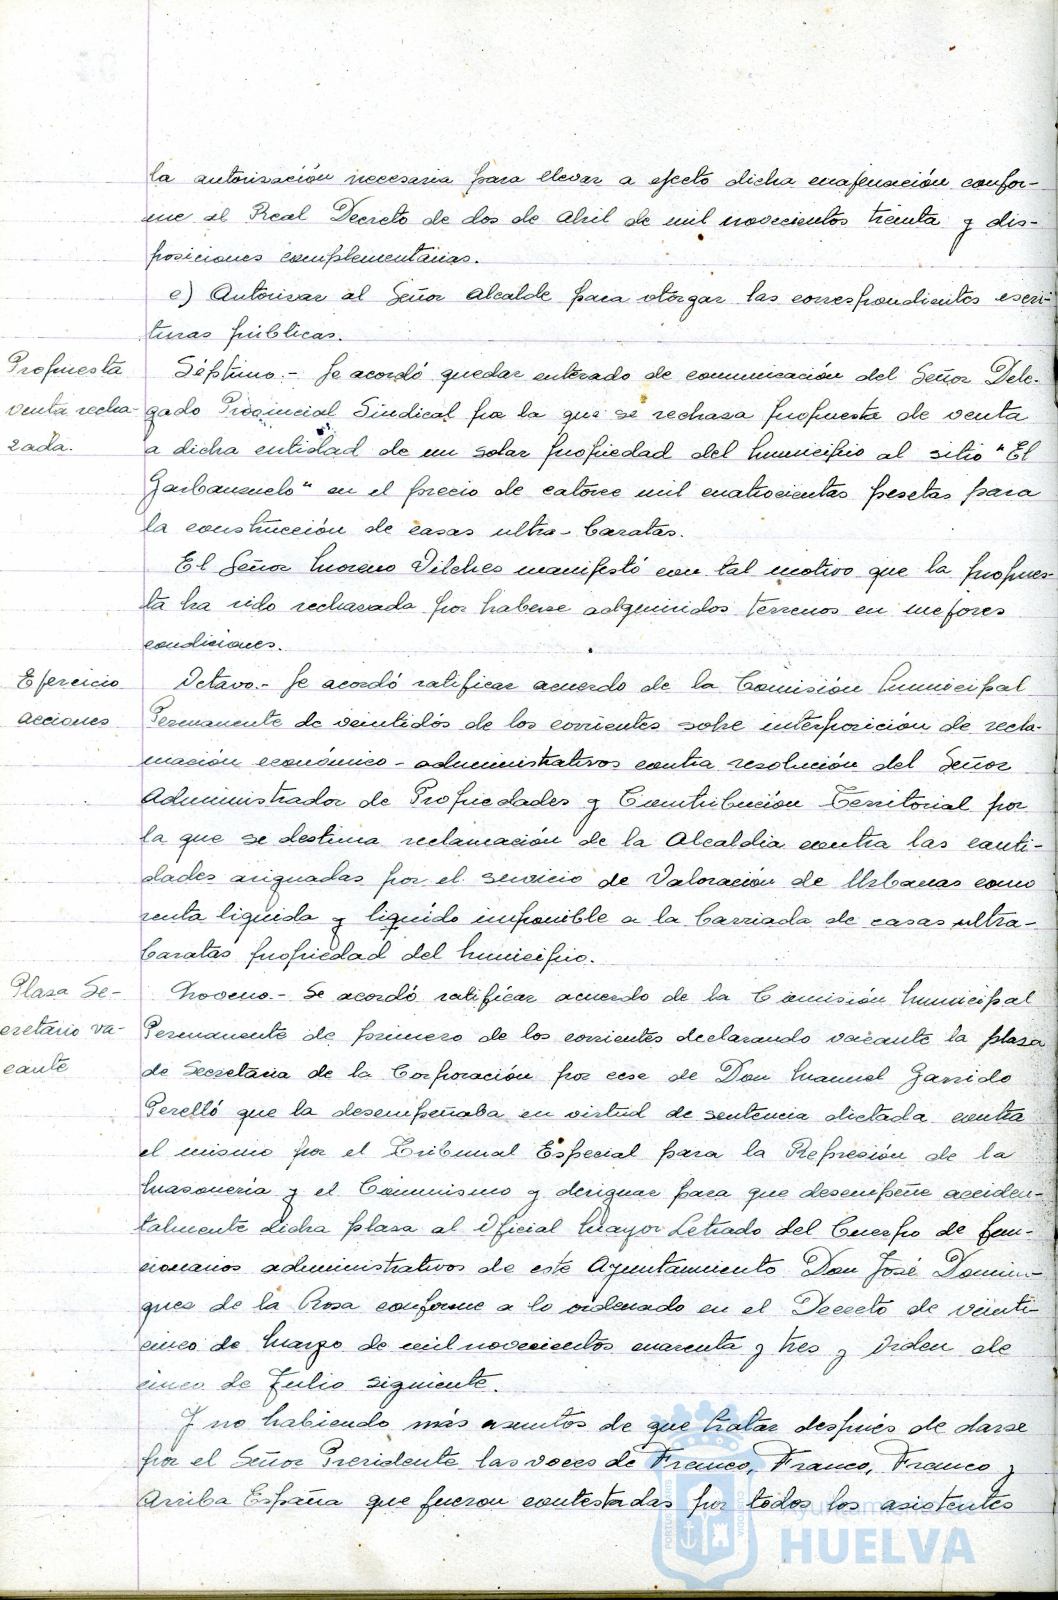 la autorización necesaria para llevar a efecto dicha enajenación confor-
me al Real Decreto de dos de Abril de mil novecientos treinta y dis-
posiciones complementarias.
e) Autorizar al Señor Alcalde para otorgar las correspondientes escri-
turas públicas.
Propuesta
venta recha-
zada.
Séptimo.- Se acordó quedar enterado de comunicación del Señor Dele-
gado Provincial Sindical por la que se rechaza propuesta de venta
a dicha entidad de un solar propiedad del Municipio al sitio "El
Garbanzuelo" en el precio de catorce mil cuatrocientas pesetas para
la construcción de casas ultra-baratas.
El Señor Moreno Vilches manifestó con tal motivo que la propues-
ta ha sido rechazada por haberse adquiridos terrenos en mejores
condiciones.
Ejercicio
acciones
Octavo.- Se acordó ratificar acuerdo de la Comisión Municipal
Permanente de veintidós de los corrientes sobre interposición de recla-
mación económico-administrativos contra resolución del Señor
Administrador de Propiedades y Contribución Territorial por
la que se destima reclamación de la Alcaldia contra las canti-
dades asignadas por el servicio de Valoración de Urbanas como
renta liquida y liquido imponible a la barriada de casas ultra-
baratas propiedad del Municipio.
Plaza Se-
cretario va-
cante
Noveno.- Se acordó ratificar acuerdo de la Comisión Municipal
Permanente de primero de los corrientes declarando vacante la plaza
de Secretaria de la Corporación por cese de Don Manuel Garrido
Perelló que la desempeñaba en virtud de sentencia dictada contra
el mismo por el Tribunal Especial para la Represión de la
Masonería y el Comunismo y designar para que desempeñe acciden-
talmente dicha plaza al Oficial Mayor Letrado del Cuerpo de fun-
cionarios administrativos de este Ayuntamiento Don José Domin-
guez de la Rosa conforme a lo ordenado en el Decreto de veinti-
cinco de Marzo de mil novecientos cuarenta y tres y Orden de
cinco de Julio siguiente.
Y no habiendo más asuntos de que tratar después de darse
por el Señor Presidente las voces de Franco, Franco, Franco y
Arriba España que fueron contestadas por todos los asistentes
Ayuntamiento de
HUELVA
PORTUS MARIS
CUSTODIA